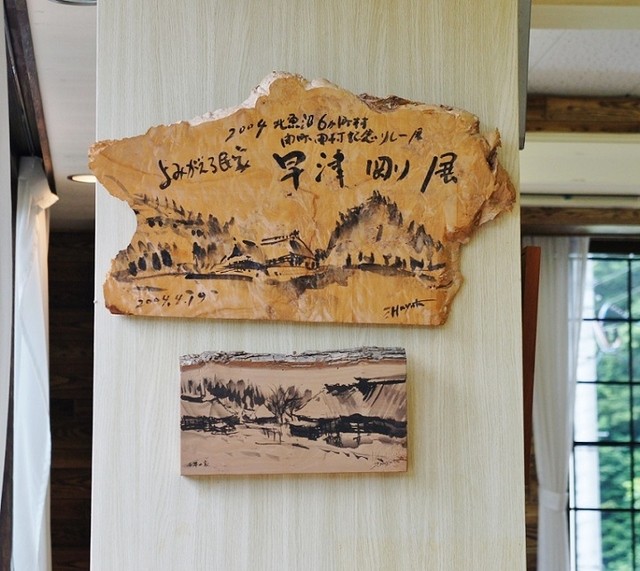 2004 北魚沼6ヵ町村
閉町、閉村記念リレー展
よみがえる民家 早津 剛 展
2004.4.19
Hayatu